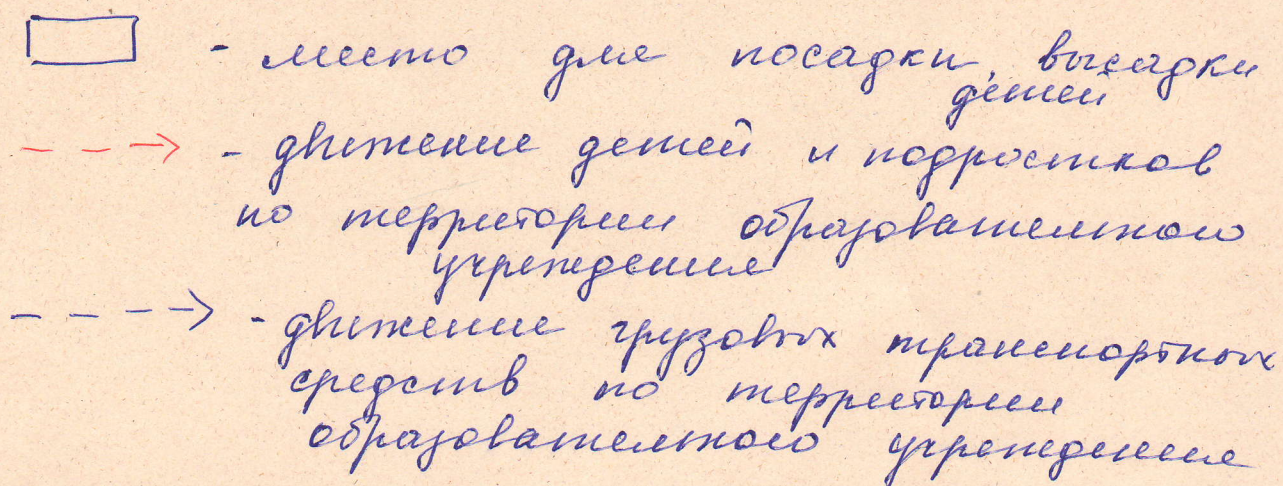 - место для посадки, высадки
детей
- движение детей и подростков
по территории образовательного
учреждения
- движение грузовых транспортных
средств по территории
образовательного учреждения